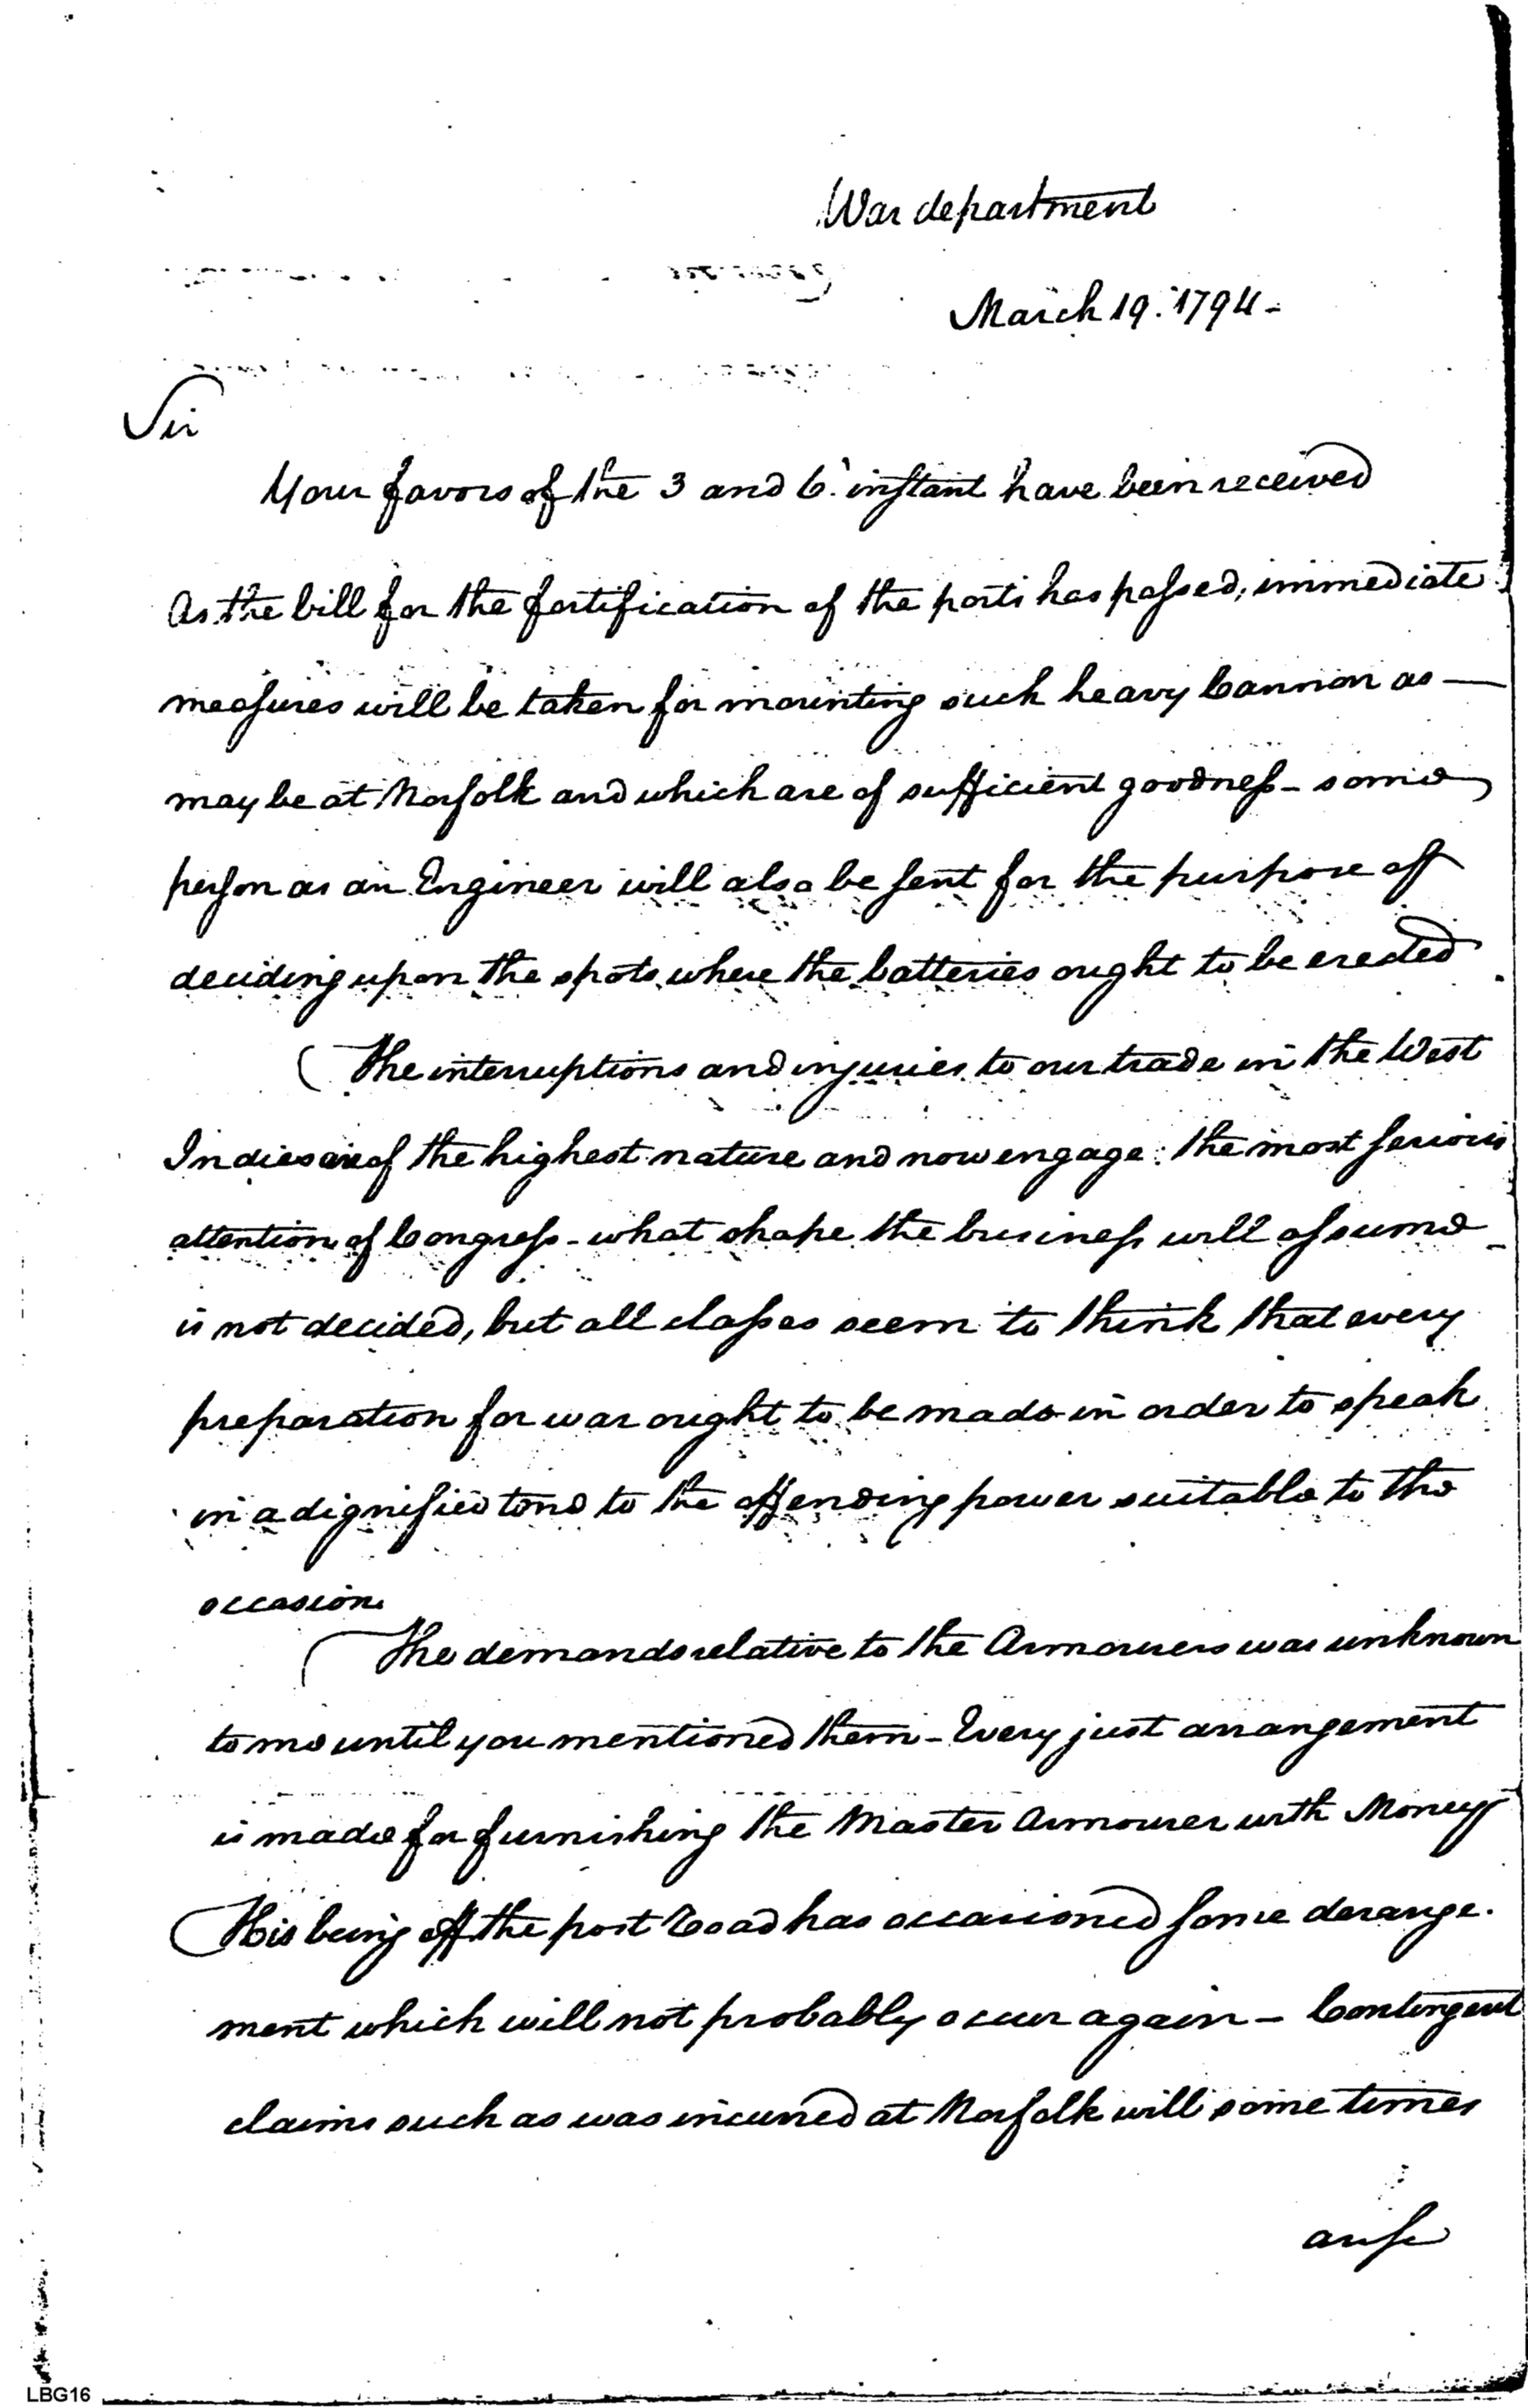 War department
March 19. 1794 -
Sir
Your favors of the 3 and 6. instant have been received
As the bill for the fortification of the ports has passed, immediate
measures will be taken for mounting such heavy Cannon as —
may be at Norfolk and which are of sufficient goodness - some
person as an Engineer will also be sent for the purpose of
deciding upon the spots where the batteries ought to be erected
The interruptions and injuries to our trade in the West
Indies are of the highest nature and now engage the most serious
attention of Congress - what shape the business will assume
is not decided, but all classes seem to think that every
preparation for war ought to be made in order to speak
in a dignified tone to the offending power suitable to the
occasion
The demands relative to the Armourers was unknown
to me until you mentioned them - Every just arrangement
is made for furnishing the Master Armourer with Money
His being off the post Road has occasioned some derange-
ment which will not probably occur again - Contingent
claims such as was incurred at Norfolk will some times
arise
LBG16